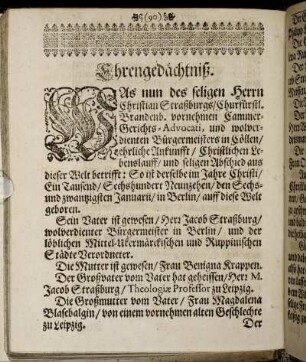 (90)
Ehrengedächtniß.
WAs nun des seligen Herrn
Christian Straßburgs/Churfürstl.
Brandenb. vornehmen Cammer-
Gerichts-Advocati, und wolver-
dienten Bürgermeisters in Cöllen/
ehrliche Ankunfft/ Christlichen Le-
benslauff/ und seligen Abschied aus
dieser Welt betrifft: So ist derselbe im Jahre Christi/
Ein Tausend/ Sechshundert Neunzehen/ den Sechs-
und zwantzigsten Januarii/ in Berlin/ auff diese Welt
geboren.
Sein Vater ist gewesen/ Herr Jacob Straßburg/
wolverdienter Bürgermeister in Berlin/ und der
löblichen Mittel-Ukermärckischen und Ruppinischen
Städte Verordneter.
Die Mutter ist gewesen/ Frau Benigna Krappen.
Der Großvater vom Vater hat geheissen/ Herr M.
Jacob Straßburg/ Theologiæ Professor zu Leipzig.
Die Großmutter vom Vater/ Frau Magdalena
Blasebalgin/ von einem vornehmen alten Geschlechte
zu Leipzig.
Der